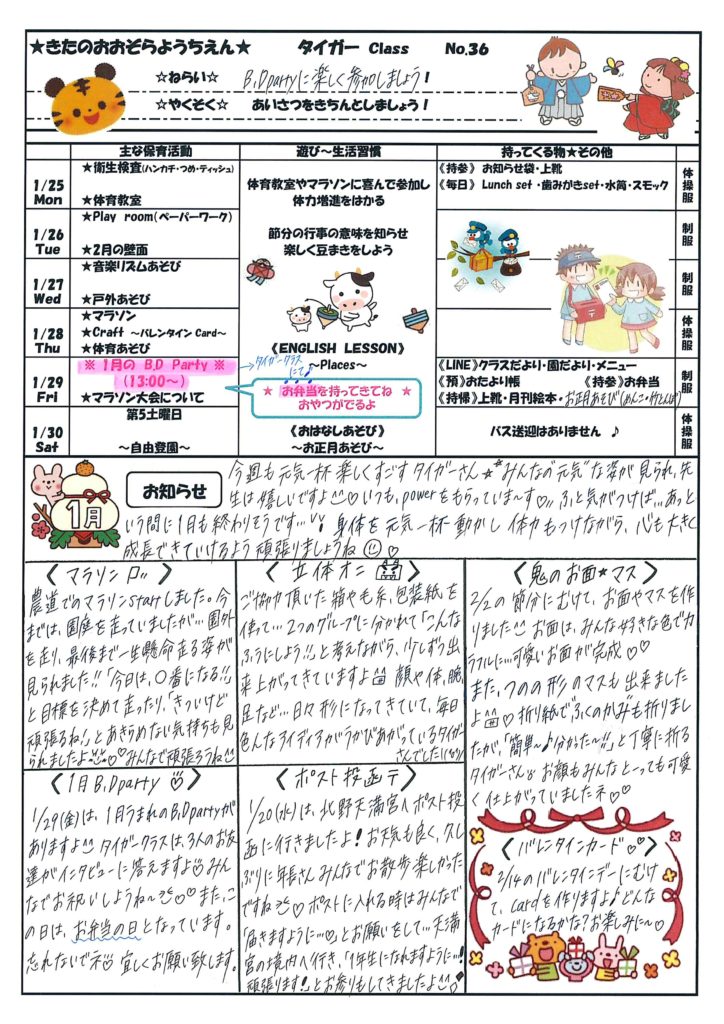 ★きたのおおぞらようちえん★ タイガー Class No.36
☆ねらい☆ B,Dpartyに楽しく参加しましょう!
☆やくそく☆ あいさつをきちんとしましょう!
主な保育活動 遊び～生活習慣 持ってくる物★その他
1/25 Mon
★衛生検査(ハンカチ・つめ・ティッシュ)
★体育教室
体育教室やマラソンに喜んで参加し
体力増進をはかる
《持参》 お知らせ袋・上靴
《毎日》 Lunch set・歯みがきset・水筒・スモック
体操服
1/26 Tue
★Play room(ペーパーワーク)
★2月の壁面
節分の行事の意味を知らせ
楽しく豆まきをしよう
制服
1/27 Wed
★音楽リズムあそび
★戸外あそび
制服
1/28 Thu
★マラソン
★Craft ～バレンタイン Card～
★体育あそび
《ENGLISH LESSON》
～Places～
体操服
1/29 Fri
※ 1月の B,D Party ※
(13:00～)
→タイガークラスにて♪
★マラソン大会について
★ お弁当を持ってきてね ★
おやつがでるよ
《LINE》クラスだより・園だより・メニュー
《預》おたより帳 《持参》お弁当
《持帰》上靴・月刊絵本・お正月あそび(めんこ・竹とんぼ)
制服
1/30 Sat
第5土曜日
～自由登園～
《おはなしあそび》
～お正月あそび～
バス送迎はありません ♪
体操服
1月
お知らせ
今週も元気一杯楽しくすごすタイガーさん☆★みんなの"元気"な姿が見られ、先
生は嬉しいですよ♡いつも、powerをもらっていま～す♡〃ふと気がつけば…あっと
いう間に1月も終わりそうです…!身体を元気一杯動かし体力もつけながら、心も大きく
成長できていけるよう頑張りましょうね♡
〈マラソン〉
農道でのマラソンstartしました。今
までは、園庭を走っていましたが…園外
を走り、最後まで一生懸命走る姿が
見られました!!「今日は、〇番になる!!」
と目標を決めて走ったり、「きついけど
頑張るね!」とあきらめない気持ちも見
られましたよ♡みんなで頑張ろうね
〈立体オニ〉
ご協力頂いた箱や毛糸、包装紙を
使って…2つのグループに分かれて「こんな
ふうにしよう!!」と考えながら、少しずつ出
来上がってきていますよ 顔や体、腕、
足など…日々形になってきていて、毎日
色んなアイディアがうかびあがっているタイガー
さんでした!(笑)
〈鬼のお面★マス〉
2/2の節分にむけて、お面やマスを作
りました お面は、みんな好きな色でカ
ラフルに…可愛いお面が完成♡
また、つのの形のマスも出来ました
よ ♡折り紙で"ふくのかみも折りまし
たが、「簡単～♪分かた～!!」と丁寧に折る
タイガーさん♡お顔もみんなとーっても可愛
く仕上がっていましたネ♡♡
〈1月B,Dparty〉
1/29(金)は、1月うまれのB,Dpartyが
ありますよ タイガークラスは、3人のお友
達がインタビューに答えますよ みん
なでお祝いしようね～♡♡また、こ
の日は、お弁当の日となっています。
忘れないでネ 宜しくお願い致します。
〈ポスト投函〒〉
1/20(水)は、北野天満宮へポスト投
函に行きましたよ!お天気も良く、久し
ぶりに年長さんみんなでお散歩楽しかった
ですね♡ポストに入れる時はみんなで
「届きますように…♡」とお願いをして…天満
宮の境内へ行き、「1年生になれますように…!
頑張ります!」とお参りもしてきましたよ♡
〈バレンタインカード♡♡〉
2/14のバレンタインデーにむけ
て、cardを作りますよ♪どんな
カードになるかな?お楽しみに～♡